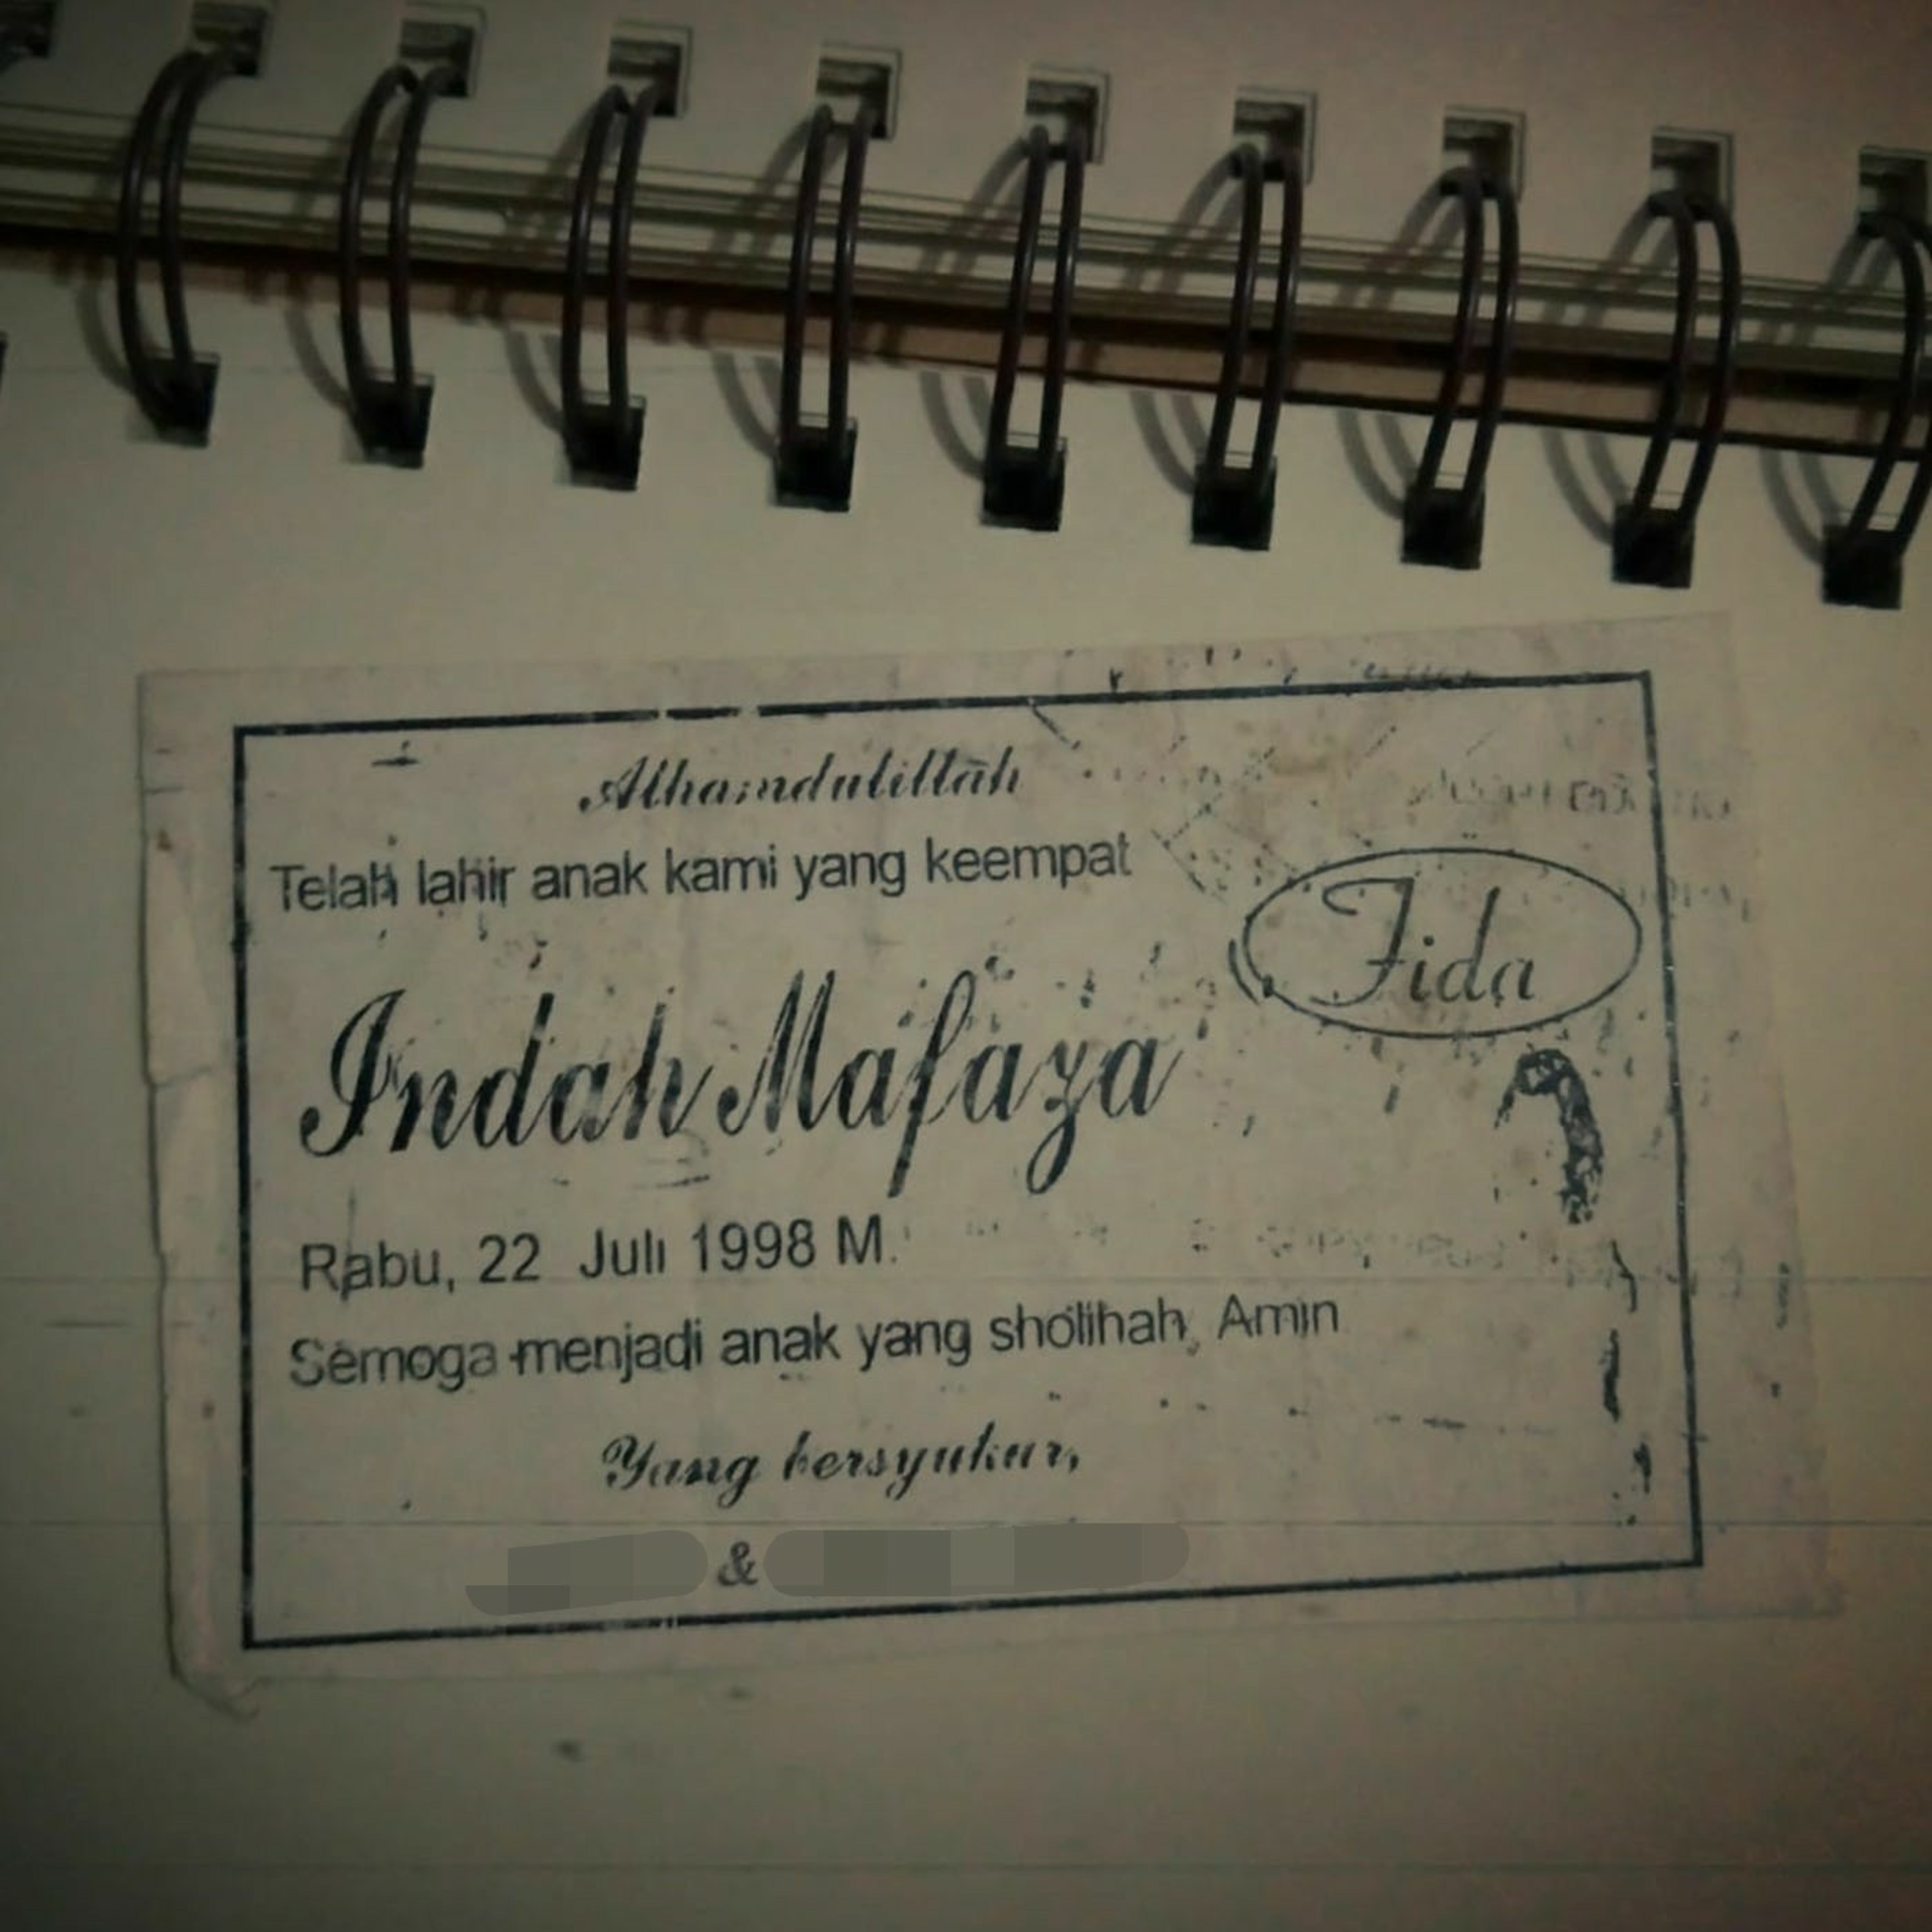 Alhamdulillah
Telah lahir anak kami yang keempat
Fida
Indah Mafaza
Rabu, 22 Juli 1998 M.
Semoga menjadi anak yang sholihah, Amin
Yang bersyukur,
&